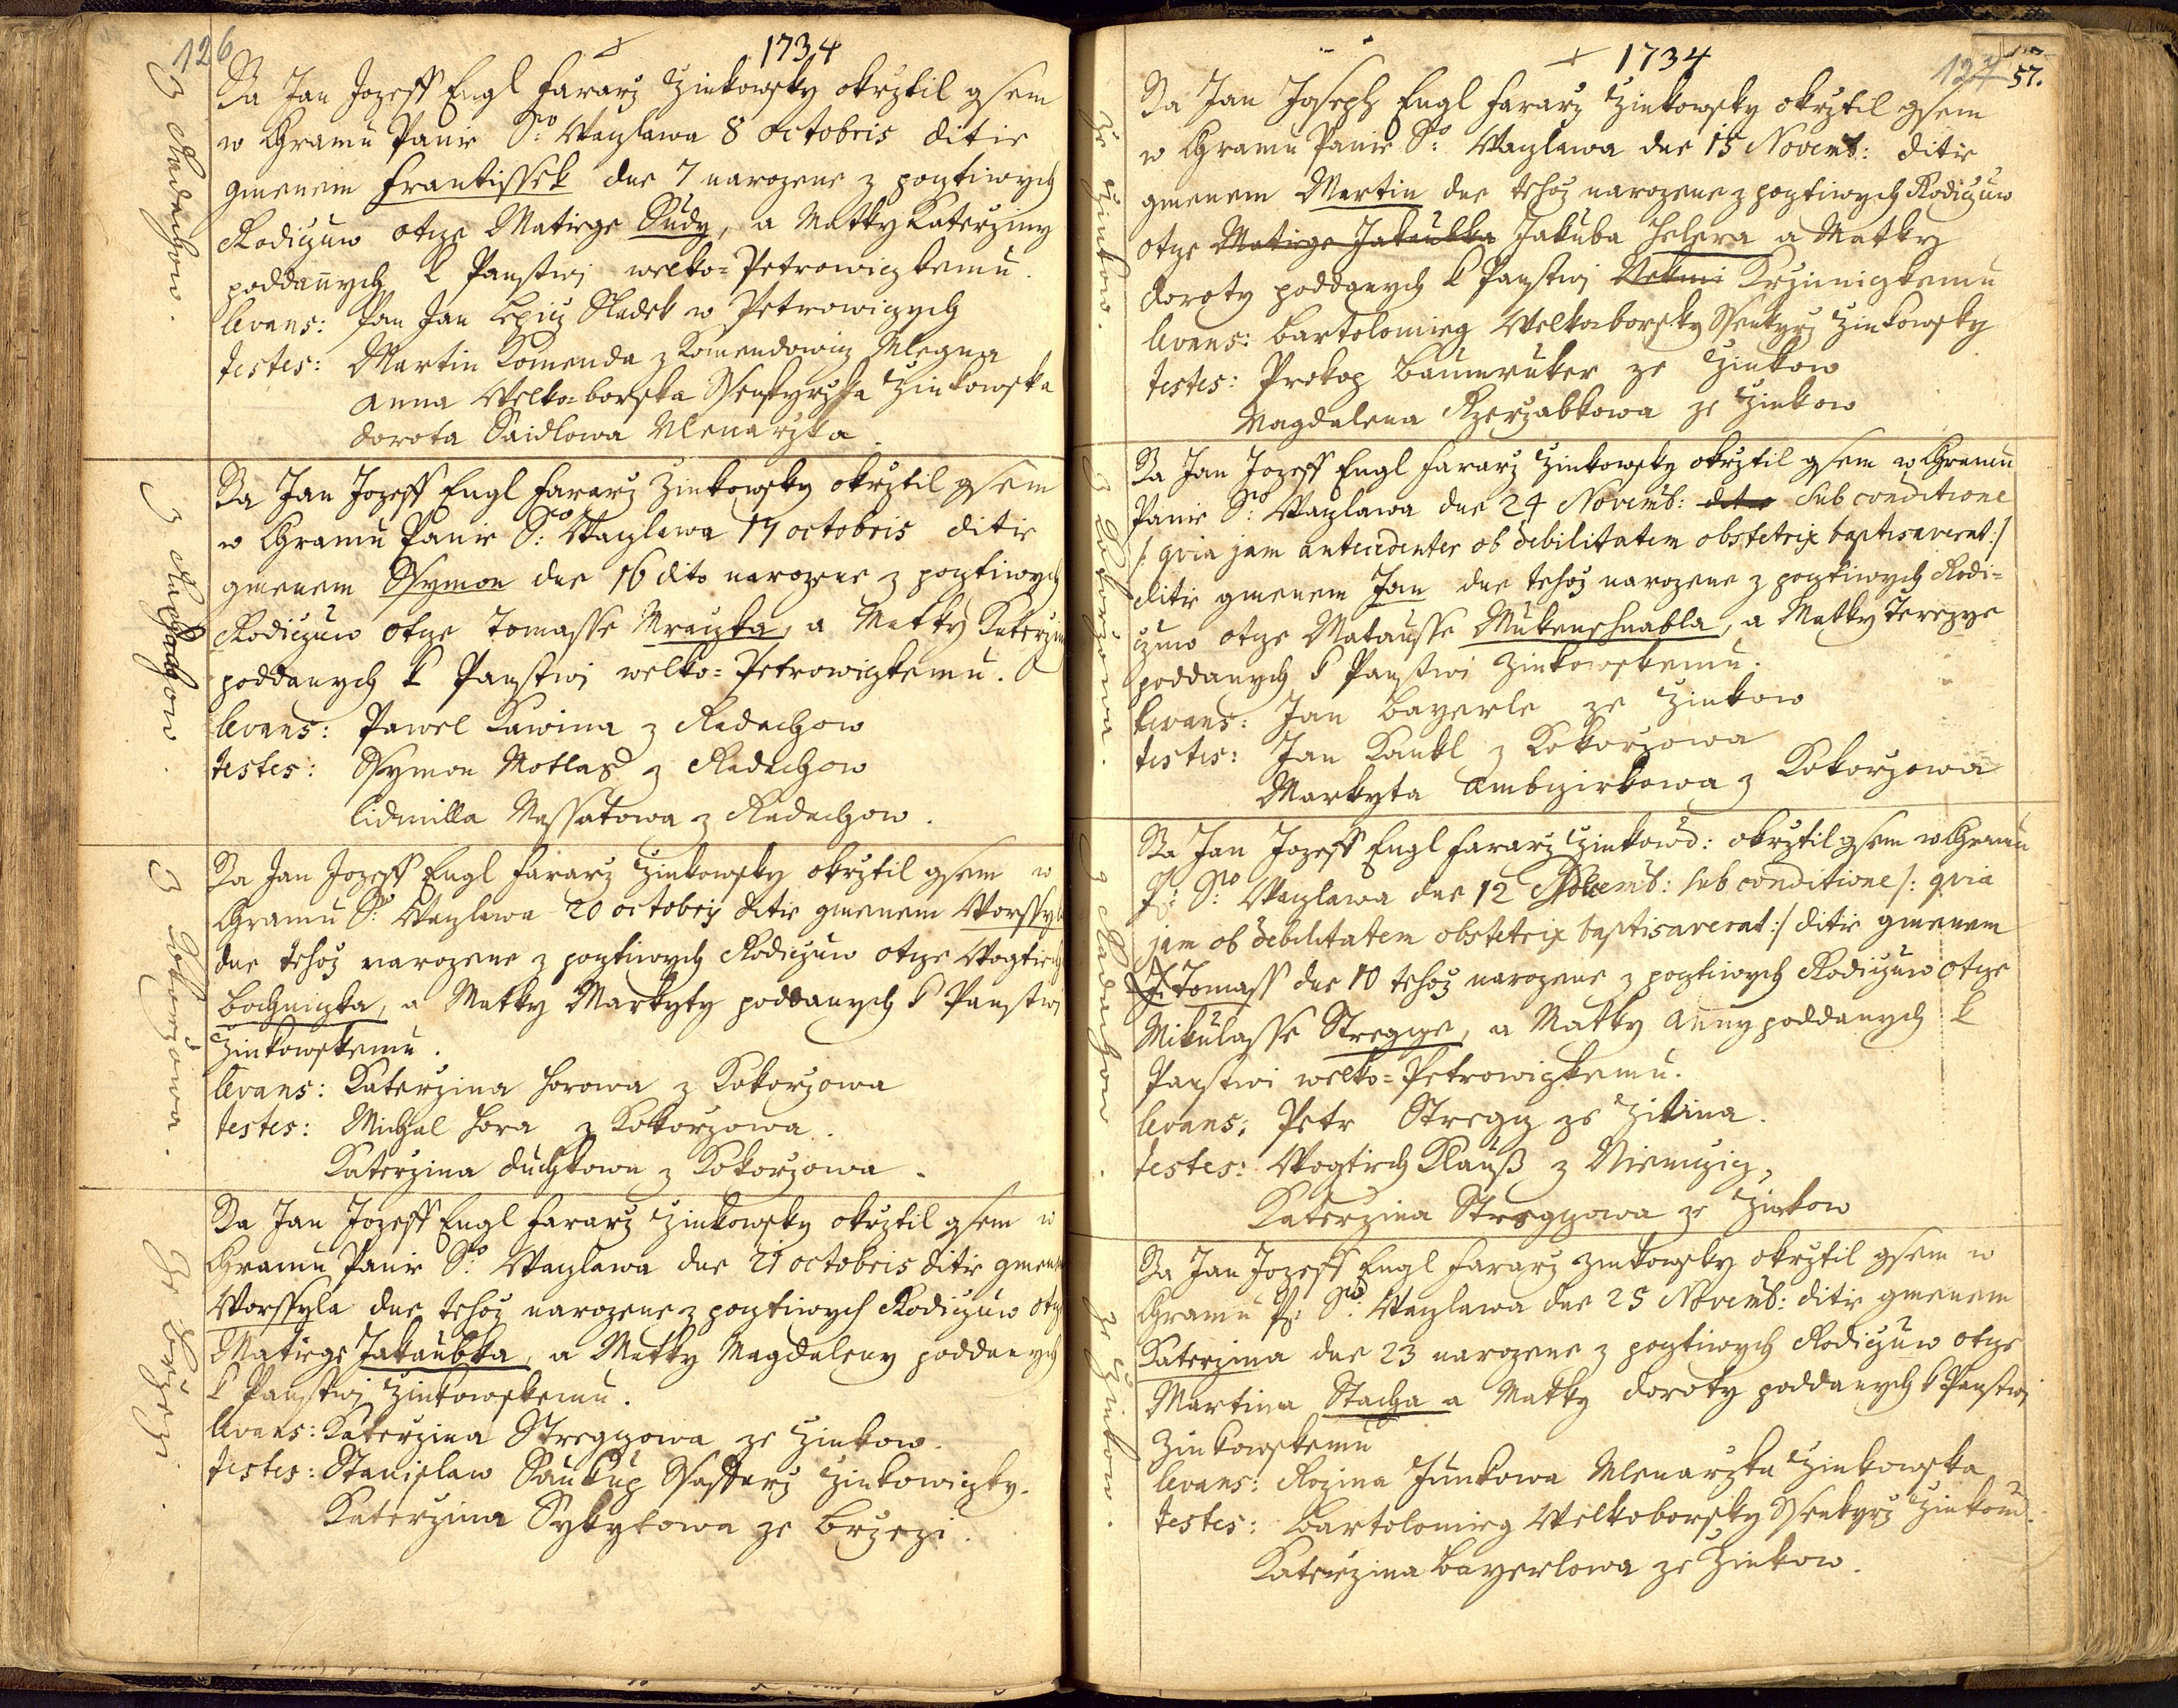 126
1734
Z Radachow.
Ja Jan Jozeff Engl Fararz Zinkowsky okrztil gsem
w Chramu Panie S:to Waczlawa 8 Octobris ditie
gmenem Frantissek dne 7 narozene z pocztiwych
Rodiczuw otcze Matiege Sudy, a Matky Katerziny
poddanych k Panstwj welko=Petrowiczkemu.
Levans: Pan Jan Lepicz Sladek w Petrowiczych
Testes: Martin Komenda z Komendowicz Mlegna
Anna Welko-borska Ssenkyrzka Zinkowska
Dorota Saidlowa Mlenarzka.
Z Radachow.
Ja Jan Jozeff Engl Fararz Zinkowsky okrztil gsem
w Chramu Panie S:to Waczlawa 17 octobris ditie
gmenem Ssymon dne 16 dito narozene z pocztiwych
Rodiczuw otcze Tomasse Mraczka, a Matky Katerziny
poddanych k Panstwj welko=Petrowiczkemu.
Levans: Pawel Kawina z Radachow
Testes: Ssymon Motlas z Radachow
Lidmilla Massatowa z Radachow.
Z Kokorzowa.
Ja Jan Jozeff Engl Fararz Zinkowsky okrztil gsem w
Chramu S:to Waczlawa 20 octobris ditie gmenem Worssyla
dne tehoz narozene z pocztiwych Rodiczuw otcze Wogtiecha
Bochniczka, a Matky Markyty poddanych k Panstwj
Zinkowskemu.
Levans: Katerzina Horowa z Kokorzowa
Testes: Michal Hora z Kokorzowa.
Katerzina Duchkowa z Kokorzowa.
Ze Brzezi.
Ja Jan Jozeff Engl Fararz Zinkowsky okrztil gsem w
Chramu Panie S:to Waczlawa dne 21 octobris ditie gmenem
Worssyla dne tehoz narozene z pocztiwych Rodiczuw otcze
Matiege Jakaubka, a Matky Magdaleny poddanych
k Panstwj Zinkowskemu.
Levans: Katerzina Stregczowa ze Zinkow.
Testes: Stanislaw Saukup Ssaffarz Zinkowiczky.
Katerzina Sykytowa ze Brzezi.
1734
127
57.
Ze Zinkow.
Ja Jan Joseph Engl Fararz Zinkowsky okrztil gsem
w Chramu Panie S:to Waczlawa dne 15 Novemb: ditie
gmenem Martin dne tehoz narozene z pocztiwych Rodiczuw
otcze Matiege Jakaubka Jakuba Helera a Matky
Doroty poddanych k Panstwj Krziniczkemu
Levans: Bartolomieg Welkoborsky Ssenkyrz Zinkowsky
Testes: Prokop Baumruker ze Zinkow
Magdalena Rzerzabkowa ze Zinkow
Z Kokorzowa.
Ja Jan Jozeff Engl Fararz Zinkowsky okrztil gsem w Chramu
Panie S:to Waczlawa dne 24 Novemb: Sub conditione
/: quia jam antecedenter ob debilitatem obstetrix baptisaverat:/
ditie gmenem Jan dne tehoz narozene z pocztiwych Rodi=
czuw otcze Matausse Mukenschnabla, a Matky Terezye
poddanych k Panstwi Zinkowskemu.
Levans: Jan Bayerle ze Zinkow
Testes: Jan Kankl z Kokorzowa
Markyta Ambczirkowa z Kokorzowa
z Radachow.
Ja Jan Jozeff Engl Fararz Zinkows: okrztil gsem w Chramu
P: S:to Waczlawa dne 12 Novemb: sub conditione /: quia
jam ob debilitatem obstetrix baptisaverat:/ ditie gmenem
Tomass dne 10 tehoz narozene z pocztiwych Rodiczuw otcze
Mikulasse Stregcze, a Matky Anny poddanych k
Panstwi welko=Petrowiczkemu.
Levans: Petr Stregcz ze Zitina.
Testes: Wogtiech Klauß z Niemczicz,
Katerzina Stregczowa ze Zinkow
Ze Zinkow.
Ja Jan Jozeff Engl Fararz Zinkowsky okrztil gsem w
Chramu P: S:to Waczlawa dne 25 Novemb: ditie gmenem
Katerzina dne 23 narozene z pocztiwych Rodiczuw otcze
Martina Stacha a Matky Doroty poddanych k Panstwj
Zinkowskemu
Levans: Rozina Junkowa Mlenarzka Zinkowska
Testes: Bartolomieg Welkoborsky Ssenkyrz Zinkow.
Katerzina Bayerlowa ze Zinkow.